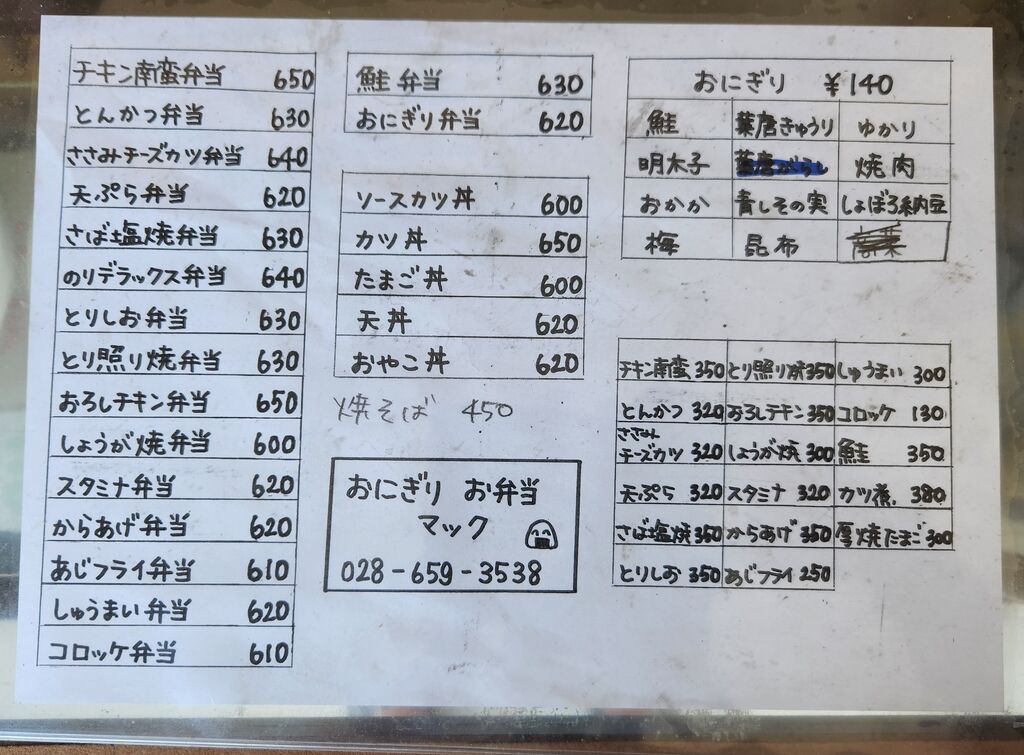 チキン南蛮弁当 650
とんかつ弁当 630
ささみチーズカツ弁当 640
天ぷら弁当 620
さば塩焼弁当 630
のりデラックス弁当 640
とりしお弁当 630
とり照り焼弁当 630
おろしチキン弁当 650
しょうが焼弁当 600
スタミナ弁当 620
からあげ弁当 620
あじフライ弁当 610
しゅうまい弁当 620
コロッケ弁当 610
鮭弁当 630
おにぎり弁当 620
ソースカツ丼 600
カツ丼 650
たまご丼 600
天丼 620
おやこ丼 620
焼そば 450
おにぎり お弁当
マック
028-659-3538
おにぎり ¥140
鮭 葉唐きゅうり ゆかり
明太子 焼肉
おかか 青しその実 しょぼろ納豆
梅 昆布
チキン南蛮 350 とり照り焼 350 しゅうまい 300
とんかつ 320 おろしチキン 350 コロッケ 130
ささみ
チーズカツ 320 しょうが焼 300 鮭 350
天ぷら 320 スタミナ 320 カツ煮 380
さば塩焼 350 からあげ 350 厚焼たまご 300
とりしお 350 あじフライ 250